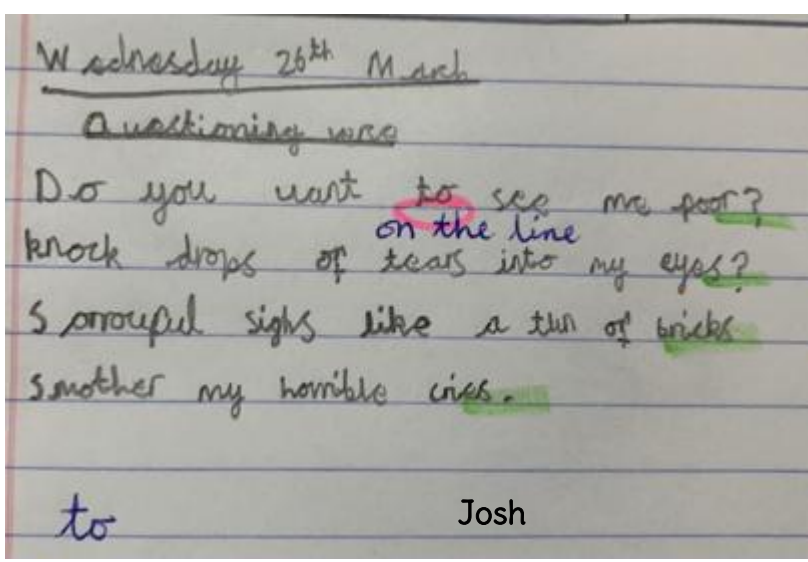 Wednesday 26th March
Questioning verse
Do you want to see me poor?
on the line
knock drops of tears into my eyes?
Sorrouful sighs like a tun of bricks
smother my horrible cries.
to
Josh